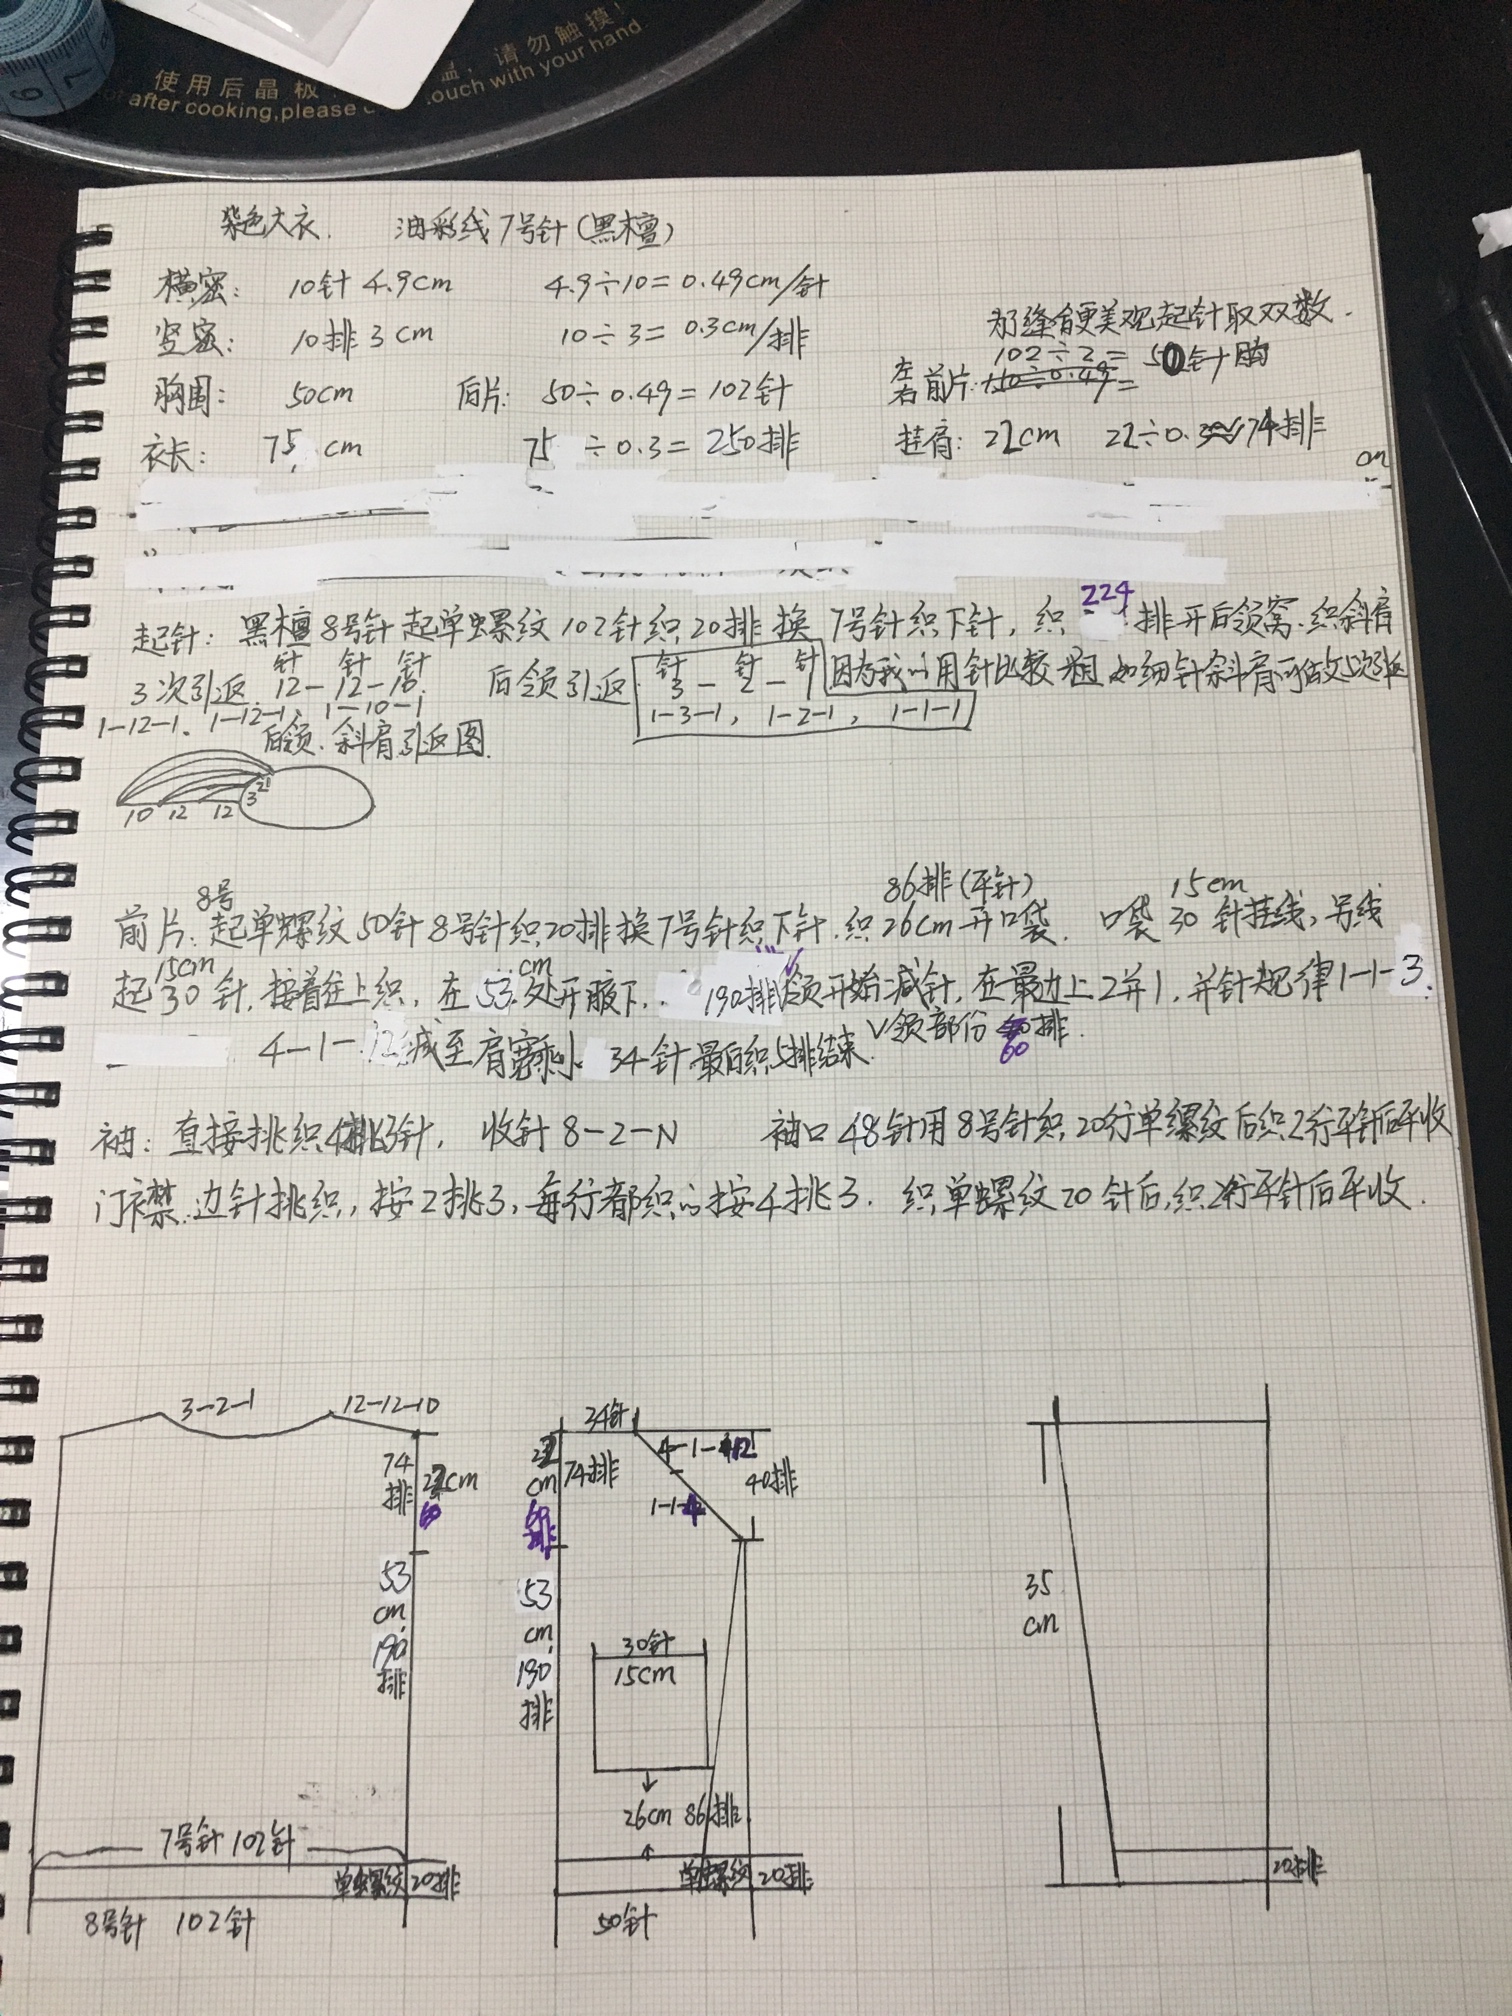 使用后晶板 温,请勿触摸!
after cooking,please touch with your hand.
染色大衣. 油彩线7号针(黑檀)
横密: 10针 4.9cm 4.9÷10=0.49cm/针
竖密: 10排 3cm 10÷3=0.3cm/排
为缝合更美观起针取双数.
胸围: 50cm 后片: 50÷0.49=102针
左右前片: 102÷2= 50针
衣长: 75 cm 75 ÷0.3=250排
挂肩: 22cm 22÷0.3≈74排
cm
起针: 黑檀8号针起单螺纹102针织20排换7号针织下针, 织224排开后领窝.织斜肩
3次引返 12针-12针-10针 后领引返 3针-2针-1针 因为我以用针比较粗 如细针斜肩可做 次引返
1-12-1. 1-12-1, 1-10-1 1-3-1, 1-2-1, 1-1-1
后领.斜肩引返图.
10 12 12 3 2 1
8号 86排(平针) 15cm
前片: 起单螺纹50针8号针织20排换7号针织下针.织26cm开口袋. 口袋30针挂线,另线
15cm cm
起30针,接着往上织,在53处开腋下. 190排领开始减针,在最边上2并1,并针规律1-1-3.
4-1-12减至肩宽剩 34针最后织5排结束. V领部份60排.
袖: 直接挑织 针, 收针8-2-N 袖口48针用8号针织20行单螺纹后织2行平针后平收
门襟: 边针挑织,按2挑3,每行都织的按4挑3. 织单螺纹20针后,织2行平针后平收.
3-2-1 12-12-10
74排 22cm
60
53cm 190排
7号针102针
单螺纹 20排
8号针 102针
34针
22cm 74排
60排
4-1-12
1-1-4
40排
53cm 190排
30针
15cm
26cm 86排
单螺纹 20排
50针
35cm
20排